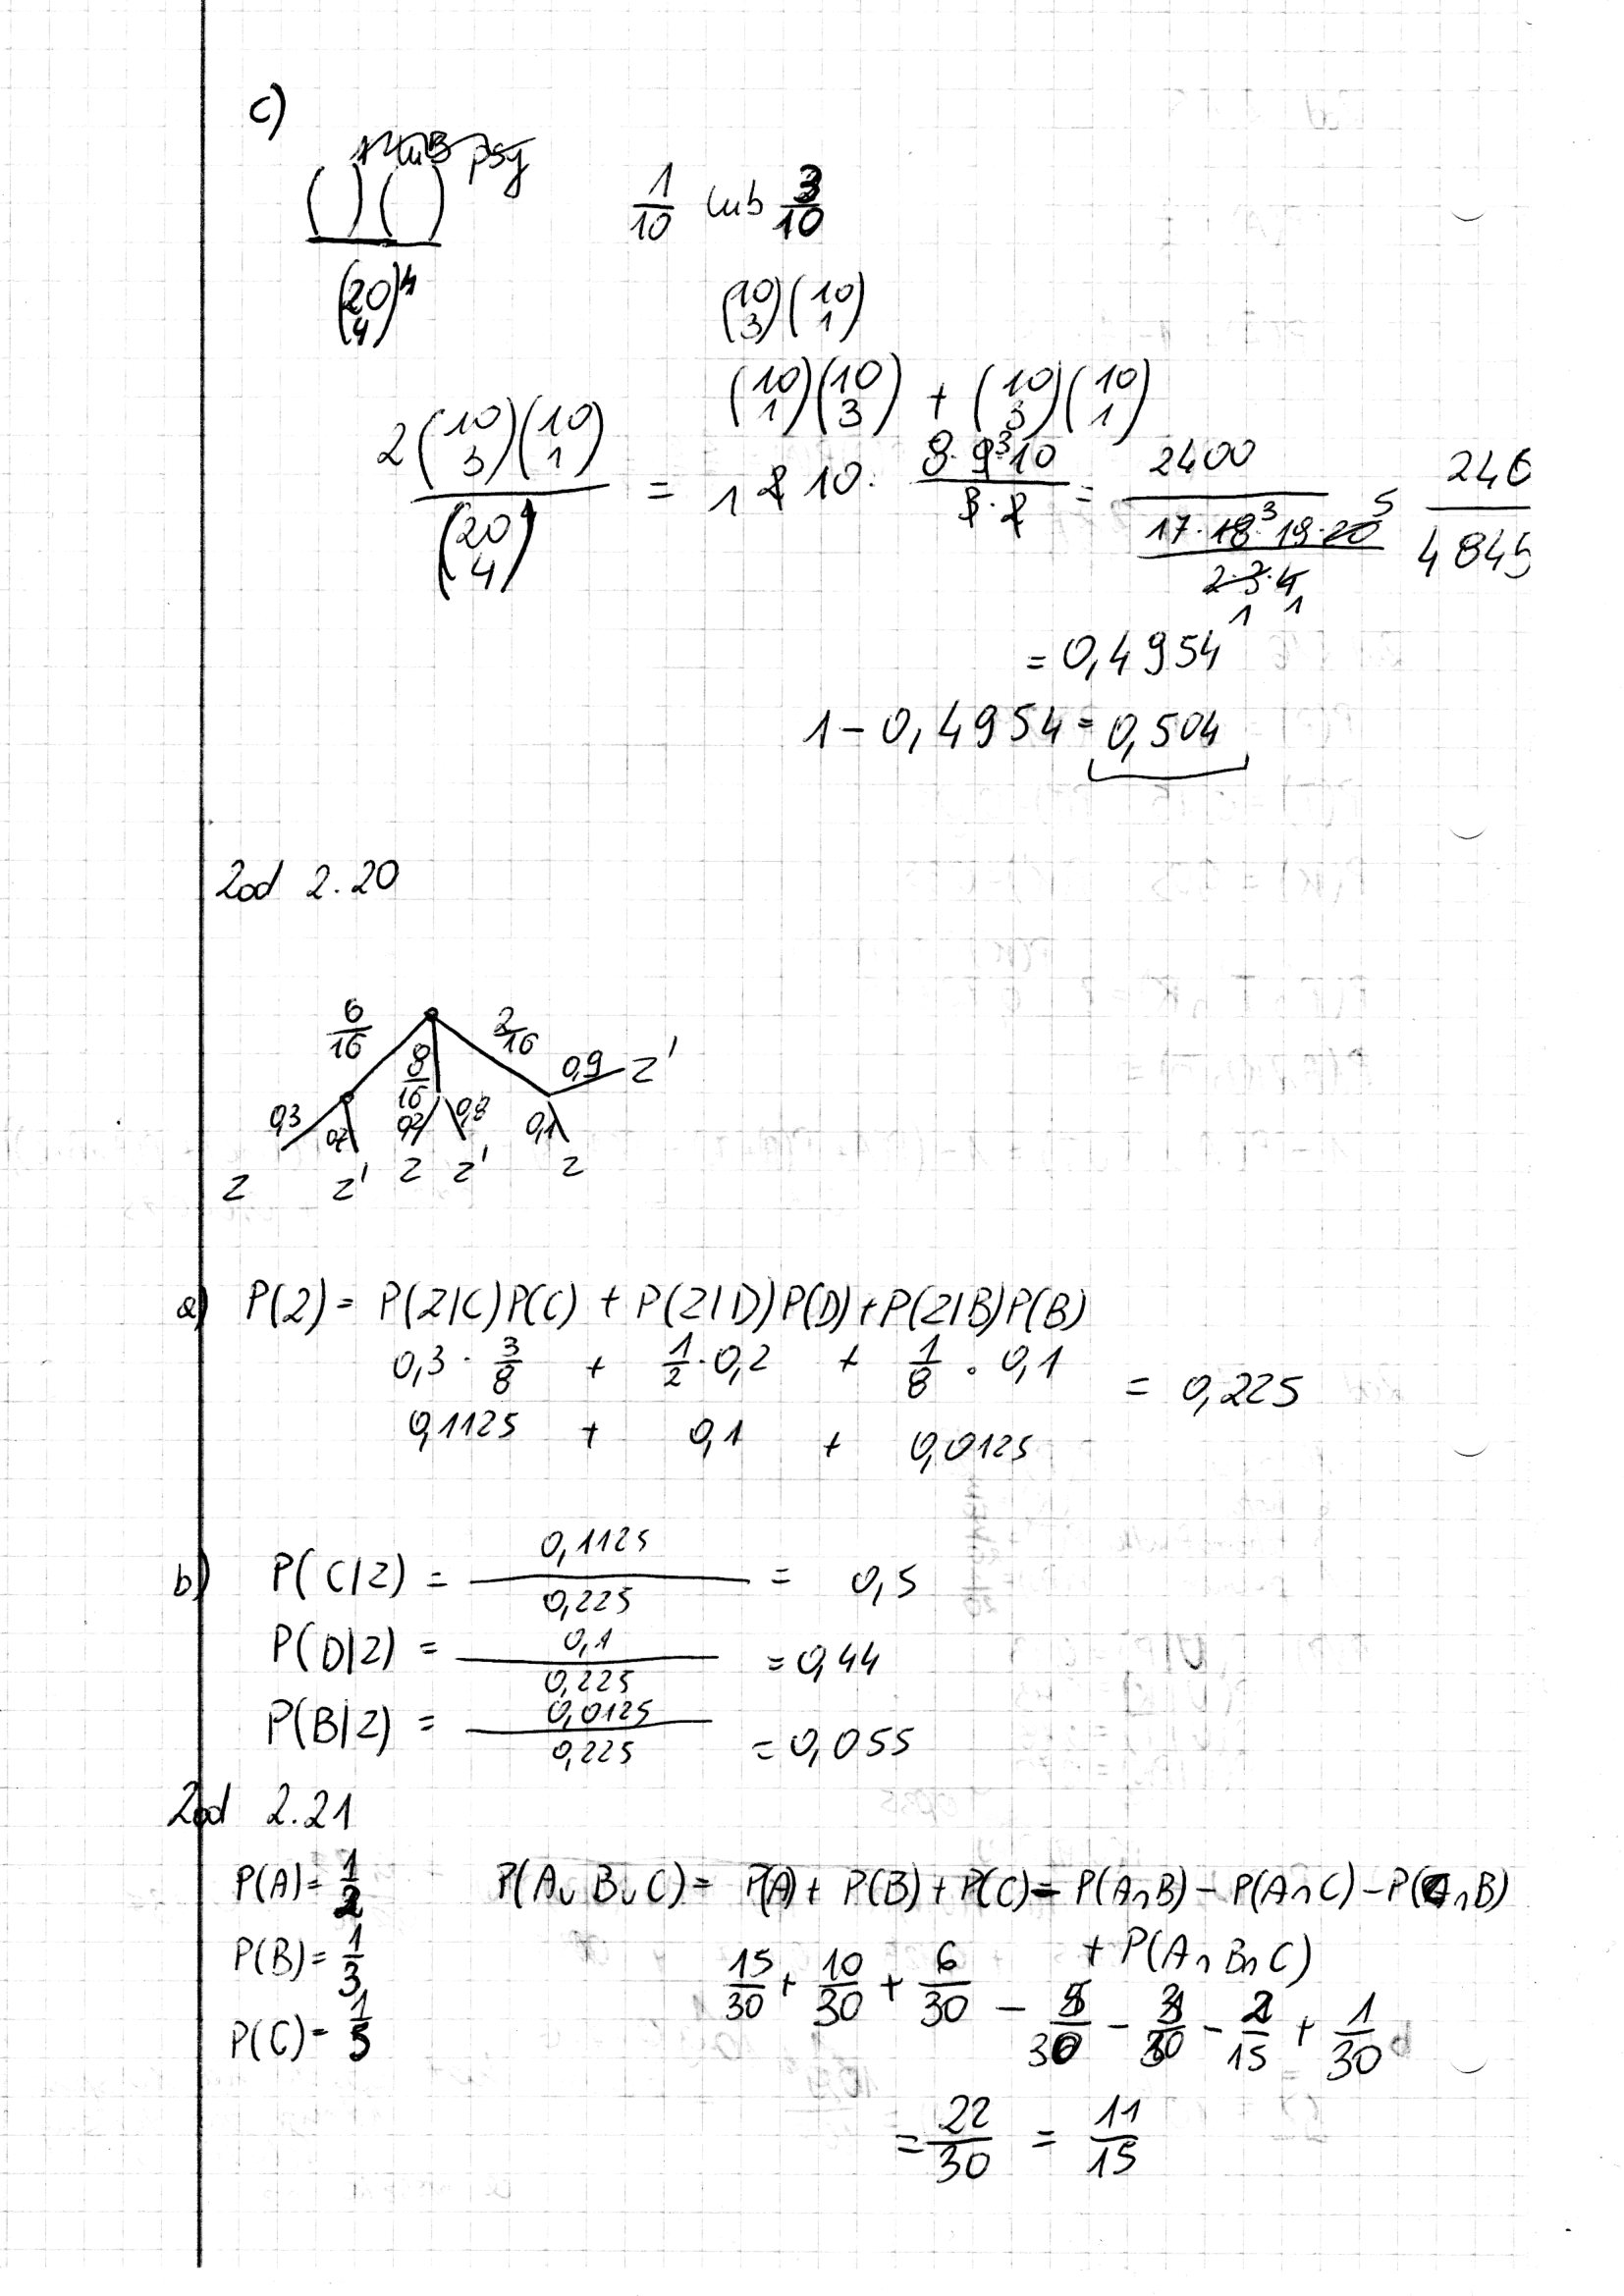 c)
psy
( ) ( )
(20 4)
1/10 lub 3/10
(10 3)(10 1)
(10 1)(10 3) + (10 3)(10 1)
2(10 3)(10 1) / (20 4) = 1 2 10 · 8·9³10 / 3·2 = 2400 / 17·18³·19·20⁵ / 2·3·4 1 1 240 / 4845
= 0,4954
1 - 0,4954 = 0,504
Zad 2.20
6/16 8/16 2/16
0,3 0,7 0,2 0,8 0,1 0,9 z'
z z' z z' z
a) P(Z) = P(Z|C)P(C) + P(Z|D)P(D) + P(Z|B)P(B)
0,3 · 3/8 + 1/2 · 0,2 + 1/8 · 0,1 = 0,225
0,1125 + 0,1 + 0,0125
b) P(C|Z) = 0,1125 / 0,225 = 0,5
P(D|Z) = 0,1 / 0,225 = 0,44
P(B|Z) = 0,0125 / 0,225 = 0,055
Zad 2.21
P(A) = 1/2 P(A∪B∪C) = P(A) + P(B) + P(C) - P(A∩B) - P(A∩C) - P(C∩B)
+ P(A∩B∩C)
P(B) = 1/3
15/30 + 10/30 + 6/30 - 5/30 - 3/30 - 2/15 + 1/30
P(C) = 1/5
= 22/30 = 11/15